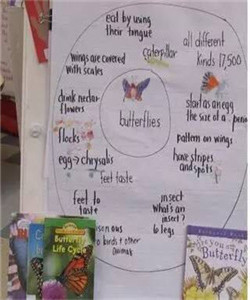 eat by using
their tongue
caterpillar
all different
kinds 17,500
wings are covered
with scales
drink nectar
flowers
start as an egg
the size of a
butterflies
flocks
pattern on wings
egg → chrysalis
have stripes
and spots
feet taste
feet to
taste
insect
What's an
insect?
6 legs
to birds + other
animals
Butterfly
Life Cycle
Are you a
Butterfly